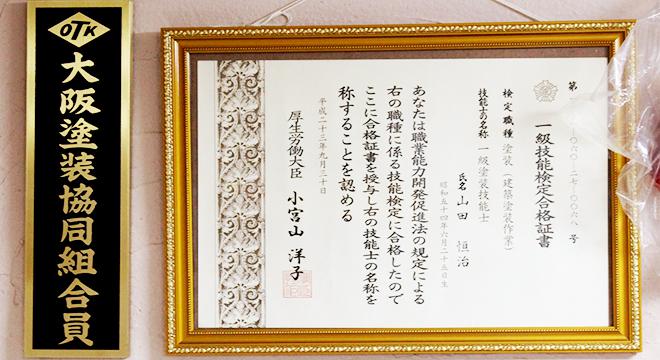 OTK
大阪塗装協同組合員
号
一級技能検定合格証書
検定職種 塗装（建築塗装作業）
技能士の名称 一級塗装技能士
氏名 山田 恒治
昭和五十四年六月二十五日生
あなたは職業能力開発促進法の規定による
右の職種に係る技能検定に合格したので
ここに合格証書を授与し右の技能士の名称を
称することを認める
平成二十三年九月三十日
厚生労働大臣 小宮山 洋子